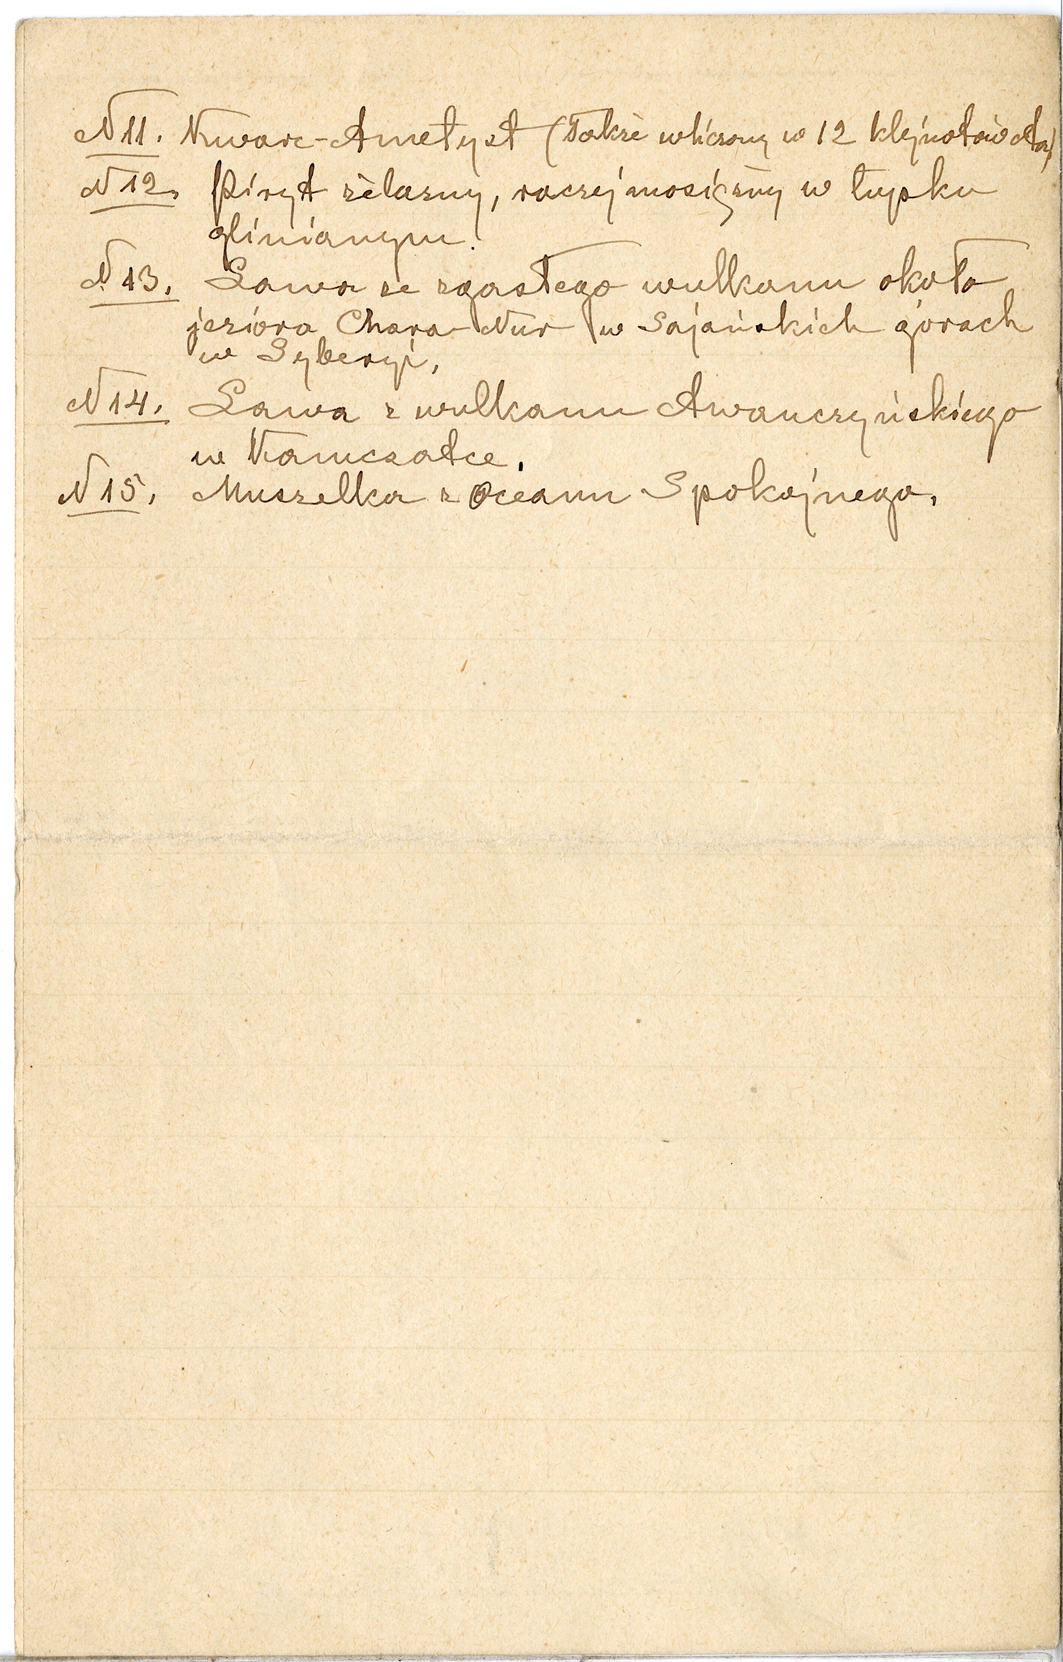 N 11. Kwarc-Ametyst (Także wliczony w 12 klejnotów
N 12. Piryt żelazny, raczej mosiężny w łupku
glinianym.
N 13. Lawa ze zgasłego wulkanu około
jeziora Chara-Nur w Sajańskich górach
w Syberyi,
N 14. Lawa z wulkanu Awanczyńskiego
w Kamczatce.
N 15. Muszelka z Oceanu Spokojnego.